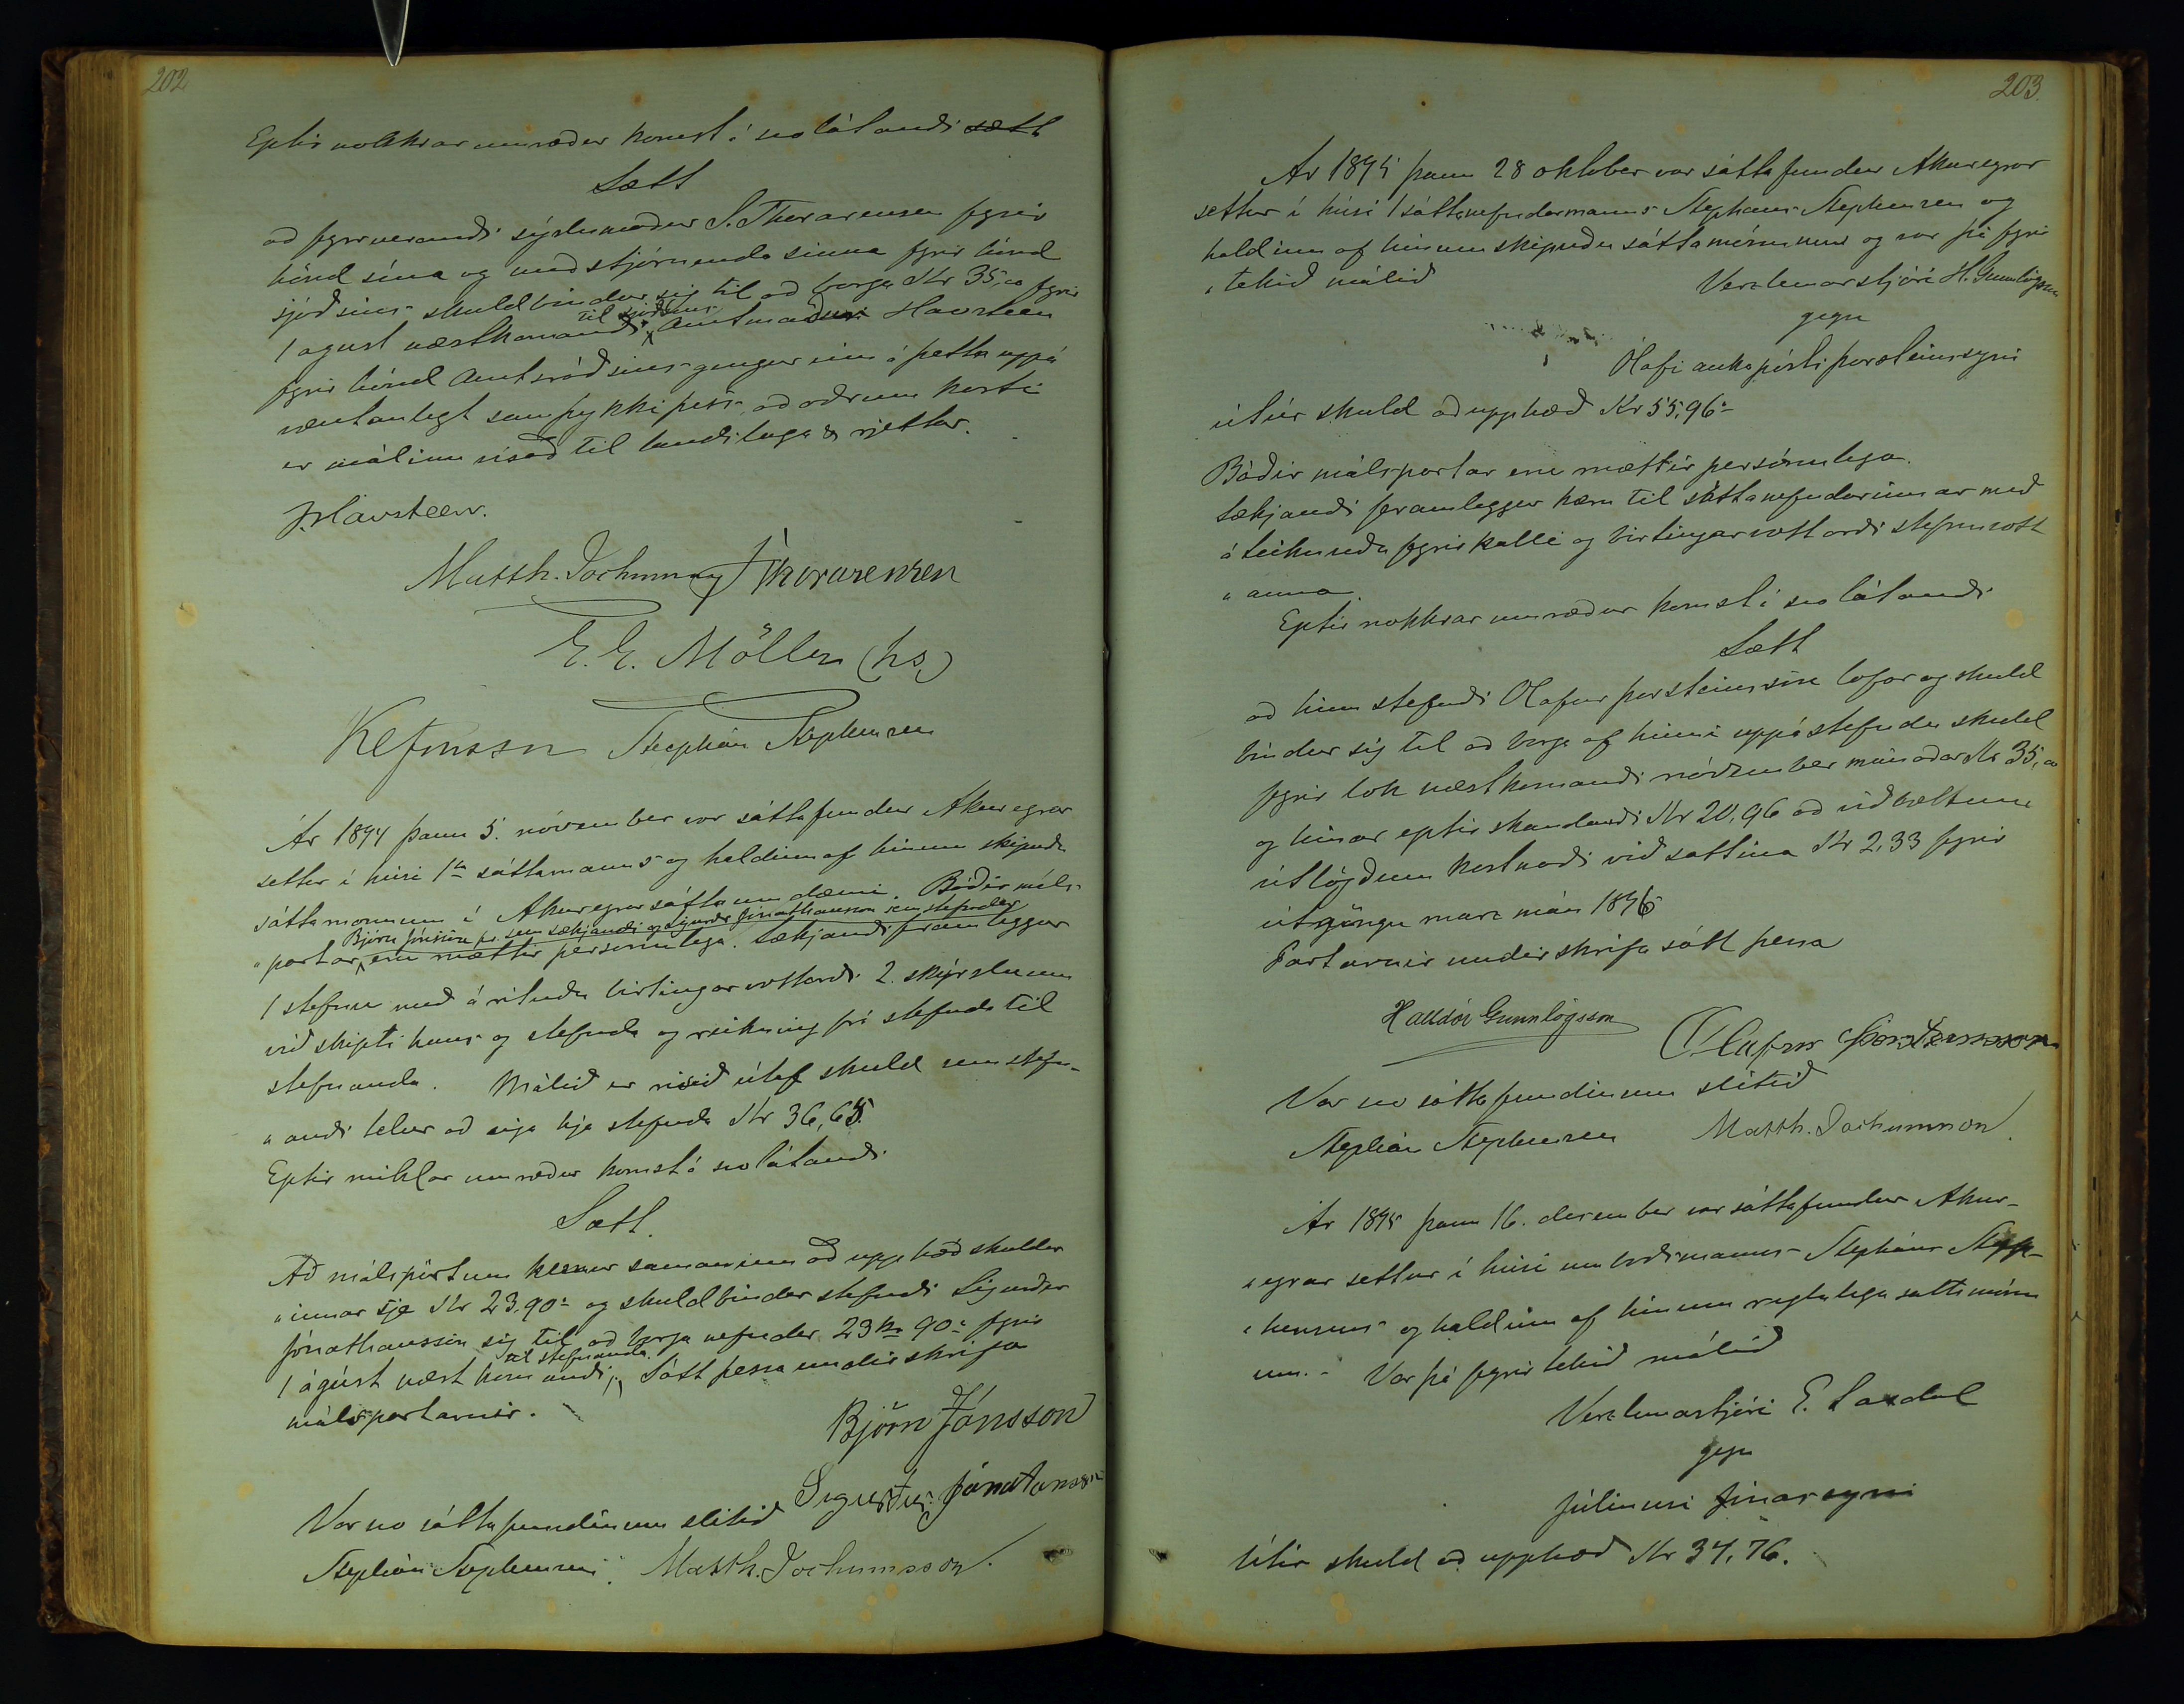 202
Eptir nokkrar umræður komst í svolátandi sætt
Sætt
að fyrverandi sýslumaður S. Thorarensen fyrir
hönd sína og meðstjórnenda sinna fyrir hönd
sjóðsins skuldbindur sig til að borga Kr 35,00 fyrir
til sjóðsins
1 agust næstkomandi, Amtmaður Havsteen
fyrir hönd Amtsráðsins gengur inn á þetta uppá
væntanlegt samþykki þess að öðrum kosti
er málinu vísað til landslaga & rjettar.
J. Havsteen.
Matth. Jochumss Thorarensen
E. E. Möller (hs)
Stephán Stephensen
Ár 1894 þann 5. nóvember var sáttafundur Akureyrar
settur í húsi 1ta sáttamanns og haldinn af hinum skipuðu
sáttamönnum í Akureyrarsáttaumdæmi. Báðir máls-
Björn Jónsson sem sækjandi og Sigurður Jónathansson sem stefndur
"partar, eru mættir persónulega. Sækjandi framleggur
1 stefnu með árituðu birtingarvottorði 2. skýrslu um
viðskipti hans og stefnda og reikning frá stefnda til
stefnanda. Málið er risið útaf skuld sem stefn-
"andi telur að eiga hjá stefnda Kr 36,65.
Eptir miklar umræður komst á svolátandi
Sætt.
Að málspörtum kemur saman um að upphæð skuldar
"innar sje Kr 23,90 og skuldbindur stefndi Sigurður
Jónathansson sig til að borga nefndar 23 kr 90 fyrir
til stefnanda.
1 ágúst næstkomandi, Sátt þessa undirskrifa
málspartarnir.
Björn Jónsson
Sigurður Jónatansson
Var svo sáttafundinum slitið
Stephán Stephensen. Matth. Jochumsson.
203.
Ár 1895 þann 28 oktober var sáttafundur Akureyrar
settur í húsi 1 sáttanefndarmanns Stephans Stephensen og
haldinn af hinum skipuðu sáttamönnum og var þá fyrir
"tekið málið
Verzlunarstjóri H. Gunnlögsson
gegn
Ólafi aukapósti Þorsteinssyni
útúr skuld að upphæð Kr 55,96
Báðir málspartar eru mættir persónulega.
Sækjandi framleggur kæru til sáttanefndarinnar með
áteiknuðu fyrirkalli og birtingarvottorði stefnuvott
"anna.
Eptir nokkrar umræður komst í svolátandi
Sætt
að hinn stefndi Olafur Þorsteinsson lofar og skuld
bindur sig til að borga af hinni uppástefndu skuld
fyrir lok næstkomandi nóvember mánaðar Kr 35,00
og hinar eptirstandandi Kr 20,96 að viðbættum
útlögðum kostnaði við sáttina Kr 2,33 fyrir
útgöngu marz mán 1896
Partarnir undirskrifa sátt þessa
Halldór Gunnlögsson
Olafur Þorsteinsson
Var svo sáttafundinum slitið
Stephán Stephensen Matth. Jochumsson.
Ár 1895 þann 16. desember var sáttafundur Akur-
"eyrar settur í húsi umboðsmanns Stephans Steph-
"hensens og haldinn af hinum reglulegu sáttamönn
um. - Var þá fyrirtekið málið
Verzlunarstjóri E. Laxdal
gegn
Júlíusi
Útúr skuld að upphæð Kr 34,76.